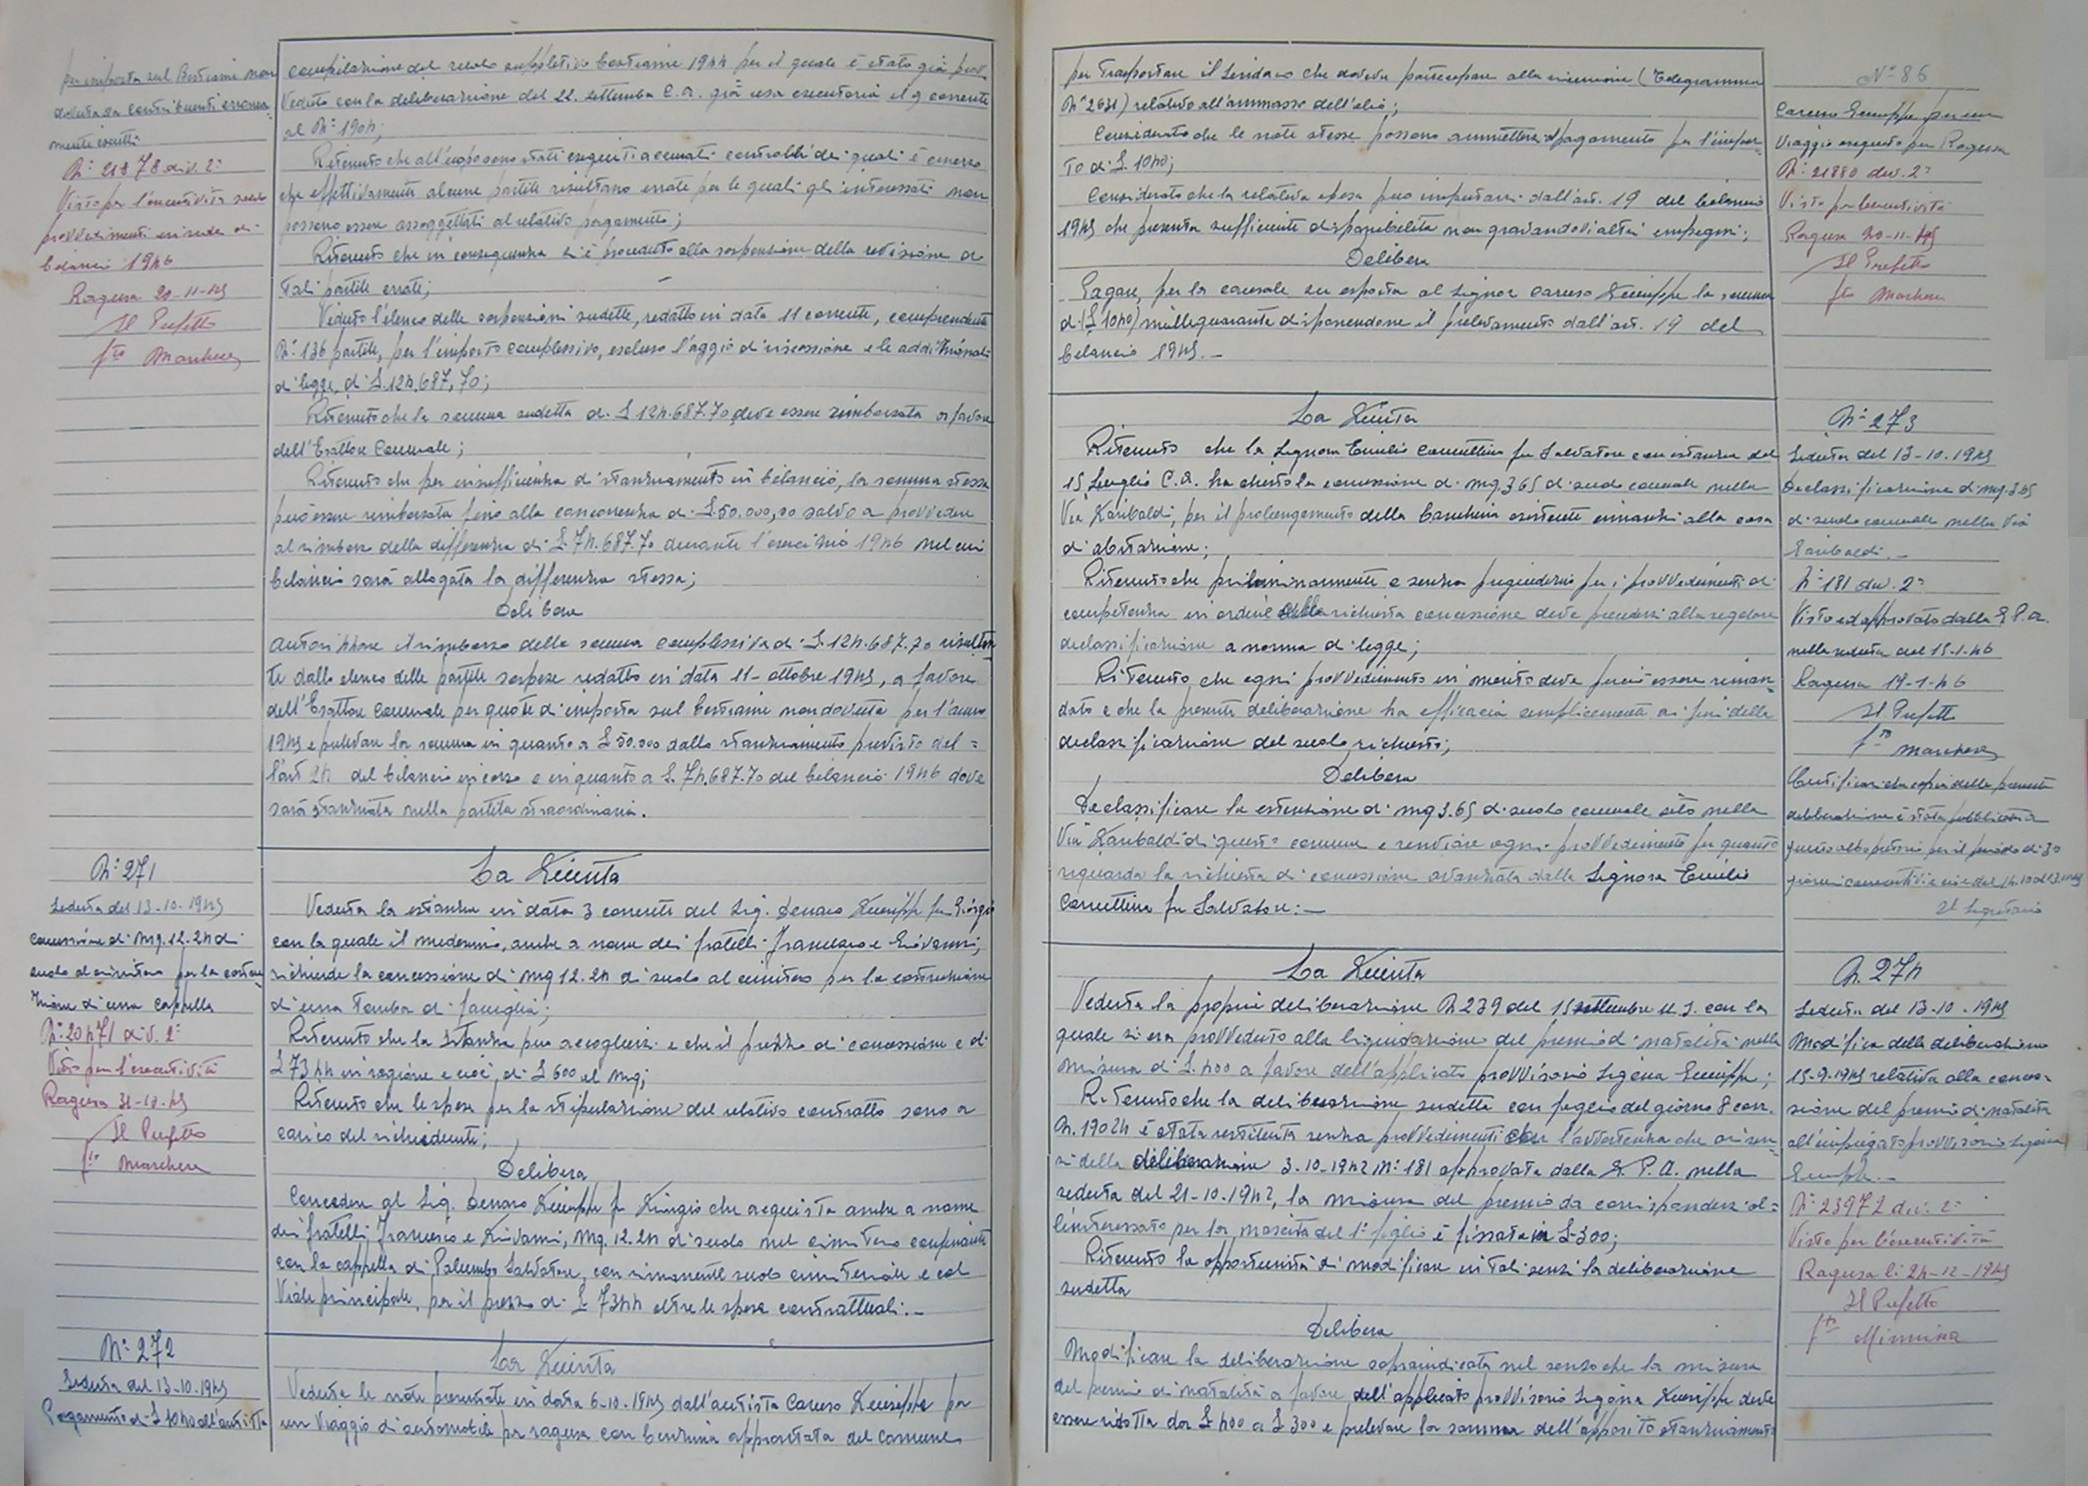 per imposta sul Bestiame non
dovuta da contribuenti erronea-
mente iscritti
N° 21878 div. 2ª
Visto per l'esecutività salvo
provvedimenti in sede di
bilancio 1946
Ragusa 20-11-45
Il Prefetto
fto Marchese
compilazione del ruolo suppletivo bestiame 1944 per il quale è stato già prov-
veduto con la deliberazione del 22 settembre c.a. già resa esecutoria il 9 corrente
al N° 1904;
Ritenuto che all'uopo sono stati eseguiti accurati controlli dai quali è emerso
che effettivamente alcune partite risultano errate per le quali gli interessati non
possono essere assoggettati al relativo pagamento;
Ritenuto che in conseguenza si è proceduto alla sospensione della revisione di
tali partite errate;
Veduto l'elenco delle sospensioni sudette, redatto in data 11 corrente, comprendente
N° 136 partite, per l'importo complessivo, escluso l'aggio di riscossione e le addizionali
di legge, di £. 124.687,70;
Ritenuto che la somma sudetta di £ 124.687.70 deve essere rimborsata a favore
dell'Esattore Comunale;
Ritenuto che per insufficienza di stanziamento in bilancio, la somma stessa
può essere rimborsata fino alla concorrenza di £. 50.000,00 salvo a provvedere
al rimborso della differenza di £. 74.687.70 durante l'esercizio 1946 nel cui
bilancio sarà allogata la differenza stessa;
Delibera
autorizzare il rimborso della somma complessiva di £. 124.687.70 risultan
te dallo elenco delle partite sospese redatto in data 11-ottobre 1945, a favore
dell'Esattore Comunale per quote di imposta sul bestiame non dovuta per l'anno
1945 e prelevare la somma in quanto a £ 50.000 dallo stanziamento previsto del-
l'art 24 del bilancio in corso e in quanto a £. 74.687.70 del bilancio 1946 dove
sarà stanziata nella partita straordinaria.
N° 271
Seduta del 13-10-1945
Concessione di mq. 12.24 di
suolo al cimitero per la costru
zione di una cappella
N° 20471 div. 2ª
Visto per l'esecutività
Ragusa 31-10-45
Il Prefetto
fto Marchese
La Giunta
Veduta la istanza in data 3 corrente del Sig. Denaro Giuseppe fu Giorgio
con la quale il medesimo, anche a nome dei fratelli Francesco e Giovanni,
richiede la concessione di mq 12.24 di suolo al cimitero per la costruzione
di una tomba di famiglia;
Ritenuto che la istanza può accogliersi e che il prezzo di concessione è di
£ 7344 in ragione e cioè, di £ 600 al mq;
Ritenuto che le spese per la stipulazione del relativo contratto sono a
carico del richiedente;
Delibera
Concedere al Sig. Denaro Giuseppe fu Giorgio che acquista anche a nome
dei fratelli Francesco e Giovanni, mq. 12.24 di suolo nel cimitero confinante
con la cappella di Palumbo Salvatore, con rimanente suolo cimiteriale e col
Viale principale, per il prezzo di £ 7344 oltre le spese contrattuali.-
N° 272
Seduta del 13-10-1945
Pagamento di £ 1040 all'autista
La Giunta
Vedute le note presentate in data 6-10-1945 dall'autista Caruso Giuseppe per
un viaggio di automobile per ragusa con benzina apprestata del Comune
per trasportare il Sindaco che doveva partecipare alla riunione (Telegramma
N° 2631) relativo all'ammasso dell'olio;
Considerato che le note stesse possono ammettersi al pagamento per l'impor-
to di £. 1040;
Considerato che la relativa spesa può imputarsi dall'art. 19 del bilancio
1945 che presenta sufficiente disponibilità non gravandovi altri impegni;
Delibera
Pagare, per la causale su esposta al Signor Caruso Giuseppe la somma
di (£ 1040) millequaranta disponendone il prelevamento dall'art. 19 del
bilancio 1945.-
N° 86
Caruso Giuseppe per un
viaggio eseguito per Ragusa
N° 21880 div. 2ª
Visto per l'esecutività
Ragusa 20-11-45
Il Prefetto
fto Marchese
La Giunta
Ritenuto che la Signora Emilio Concettina fu Salvatore con istanza del
15 Luglio c.a. ha chiesto la concessione di mq. 3.65 di suolo comunale nella
Via Garibaldi, per il prolungamento della banchina esistente innanzi alla casa
di abitazione;
Ritenuto che preliminarmente e senza pregiudizio per i provvedimenti di
competenza in ordine alla richiesta concessione deve procedersi alla regolare
declassificazione a norma di legge;
Ritenuto che ogni provvedimento in merito deve perciò essere riman-
dato e che la presente deliberazione ha efficacia semplicemente ai fini della
declassificazione del suolo richiesto;
Delibera
Declassificare la estenzione di mq 3.65 di suolo comunale sito nella
Via Garibaldi di questo comune e rinviare ogni provvedimento per quanto
riguarda la richiesta di concessione avanzata dalla Signora Emilio
Concettina fu Salvatore.-
N° 273
Seduta del 13-10-1945
Declassificazione di mq. 3.65
di suolo comunale nella Via
Garibaldi.-
N° 181 div. 2ª
Visto ed approvato dalla G.P.A.
nella seduta del 15-1-46
Ragusa 19-1-46
Il Prefetto
fto Marchese
Certificasi che copia della presente
deliberazione è stata pubblicata a
questo albo pretorio per il periodo di 30
giorni consecutivi e cioè dal
Il Segretario
La Giunta
Veduta la propria deliberazione N 239 del 15 settembre u.s. con la
quale si era provveduto alla liquidazione del premio di natalità nella
misura di £. 400 a favore dell'applicato provvisorio Ligona Giuseppe;
Ritenuto che la deliberazione sudetta con foglio del giorno 8 corr.
N. 19024 è stata restituita senza provvedimenti con l'avvertenza che ai sen-
si della deliberazione 3-10-1942 N° 181 approvata dalla G.P.A. nella
seduta del 21-10-1942, la misura del premio da corrispondersi al-
l'interessato per la nascita del 1° figlio è fissata in £ 300;
Ritenuto la opportunità di modificare in tali sensi la deliberazione
sudetta
Delibera
Modificare la deliberazione sopraindicata nel senso che la misura
del premio di natalità a favore dell'applicato provvisorio Ligona Giuseppe deve
essere ridotta da £ 400 a £ 300 e prelevare la somma dell'apposito stanziamento
N. 274
Seduta del 13-10-1945
Modifica della deliberazione
15-9-1945 relativa alla conces-
sione del premio di natalità
all'impiegato provvisorio Ligona
Giuseppe.-
N° 23972 div. 2ª
Visto per l'esecutività
Ragusa li 24-12-1945
Il Prefetto
fto